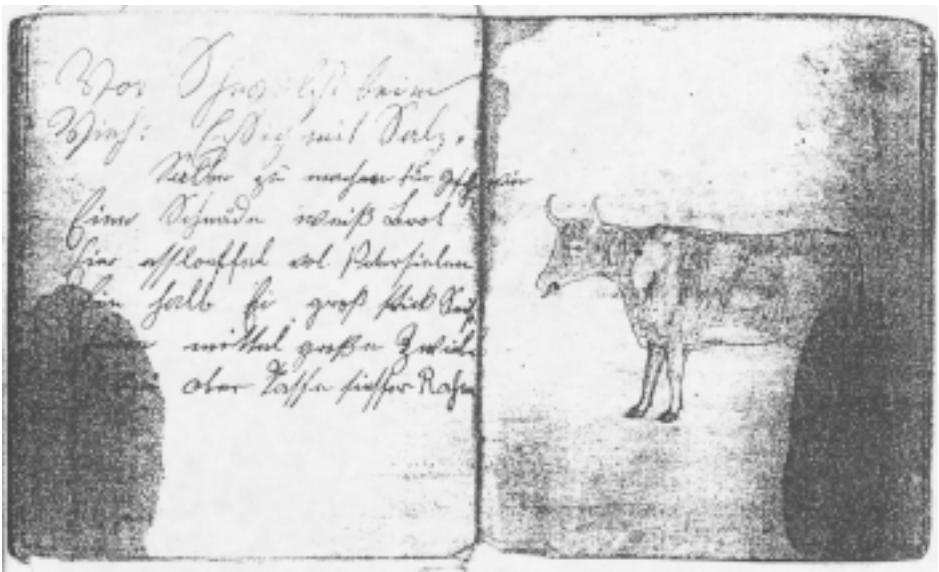 Vor Schwulst beim
Vieh: Essig mit Salz.
Salbe zu machen für
Eine Schnäde weiß Brot
Eier essloeffel vol Petersielen
Ein halb Ei groß stick
mittel große Zwibel
ober Tasse siesser Rahm